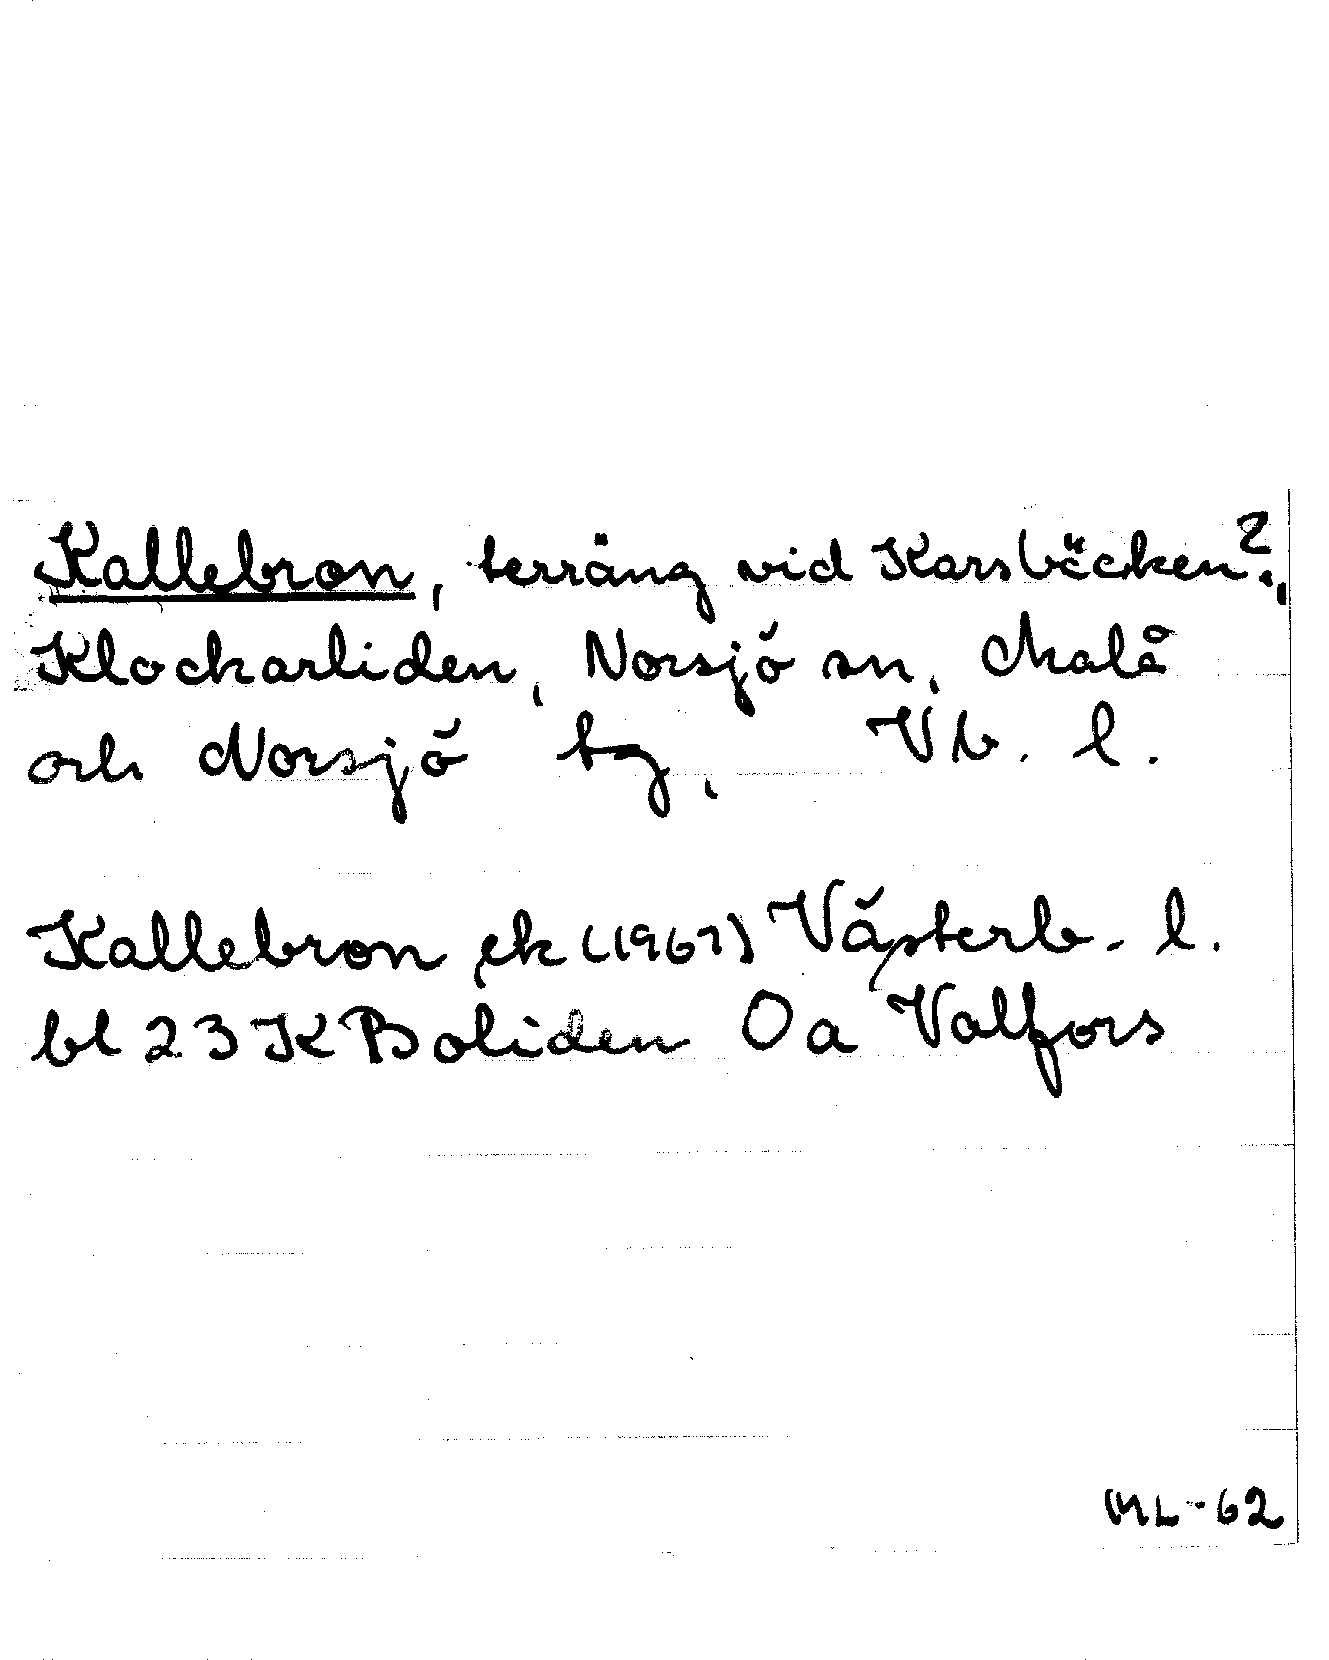 Kallebron, terräng vid Karsbäcken?,
Klockarliden, Norsjö sn, Malå
och Norsjö tg, Vb. l.
Kallebron ek (1967) Västerb. l.
bl 23 K Boliden 0a Valfors
ML-62